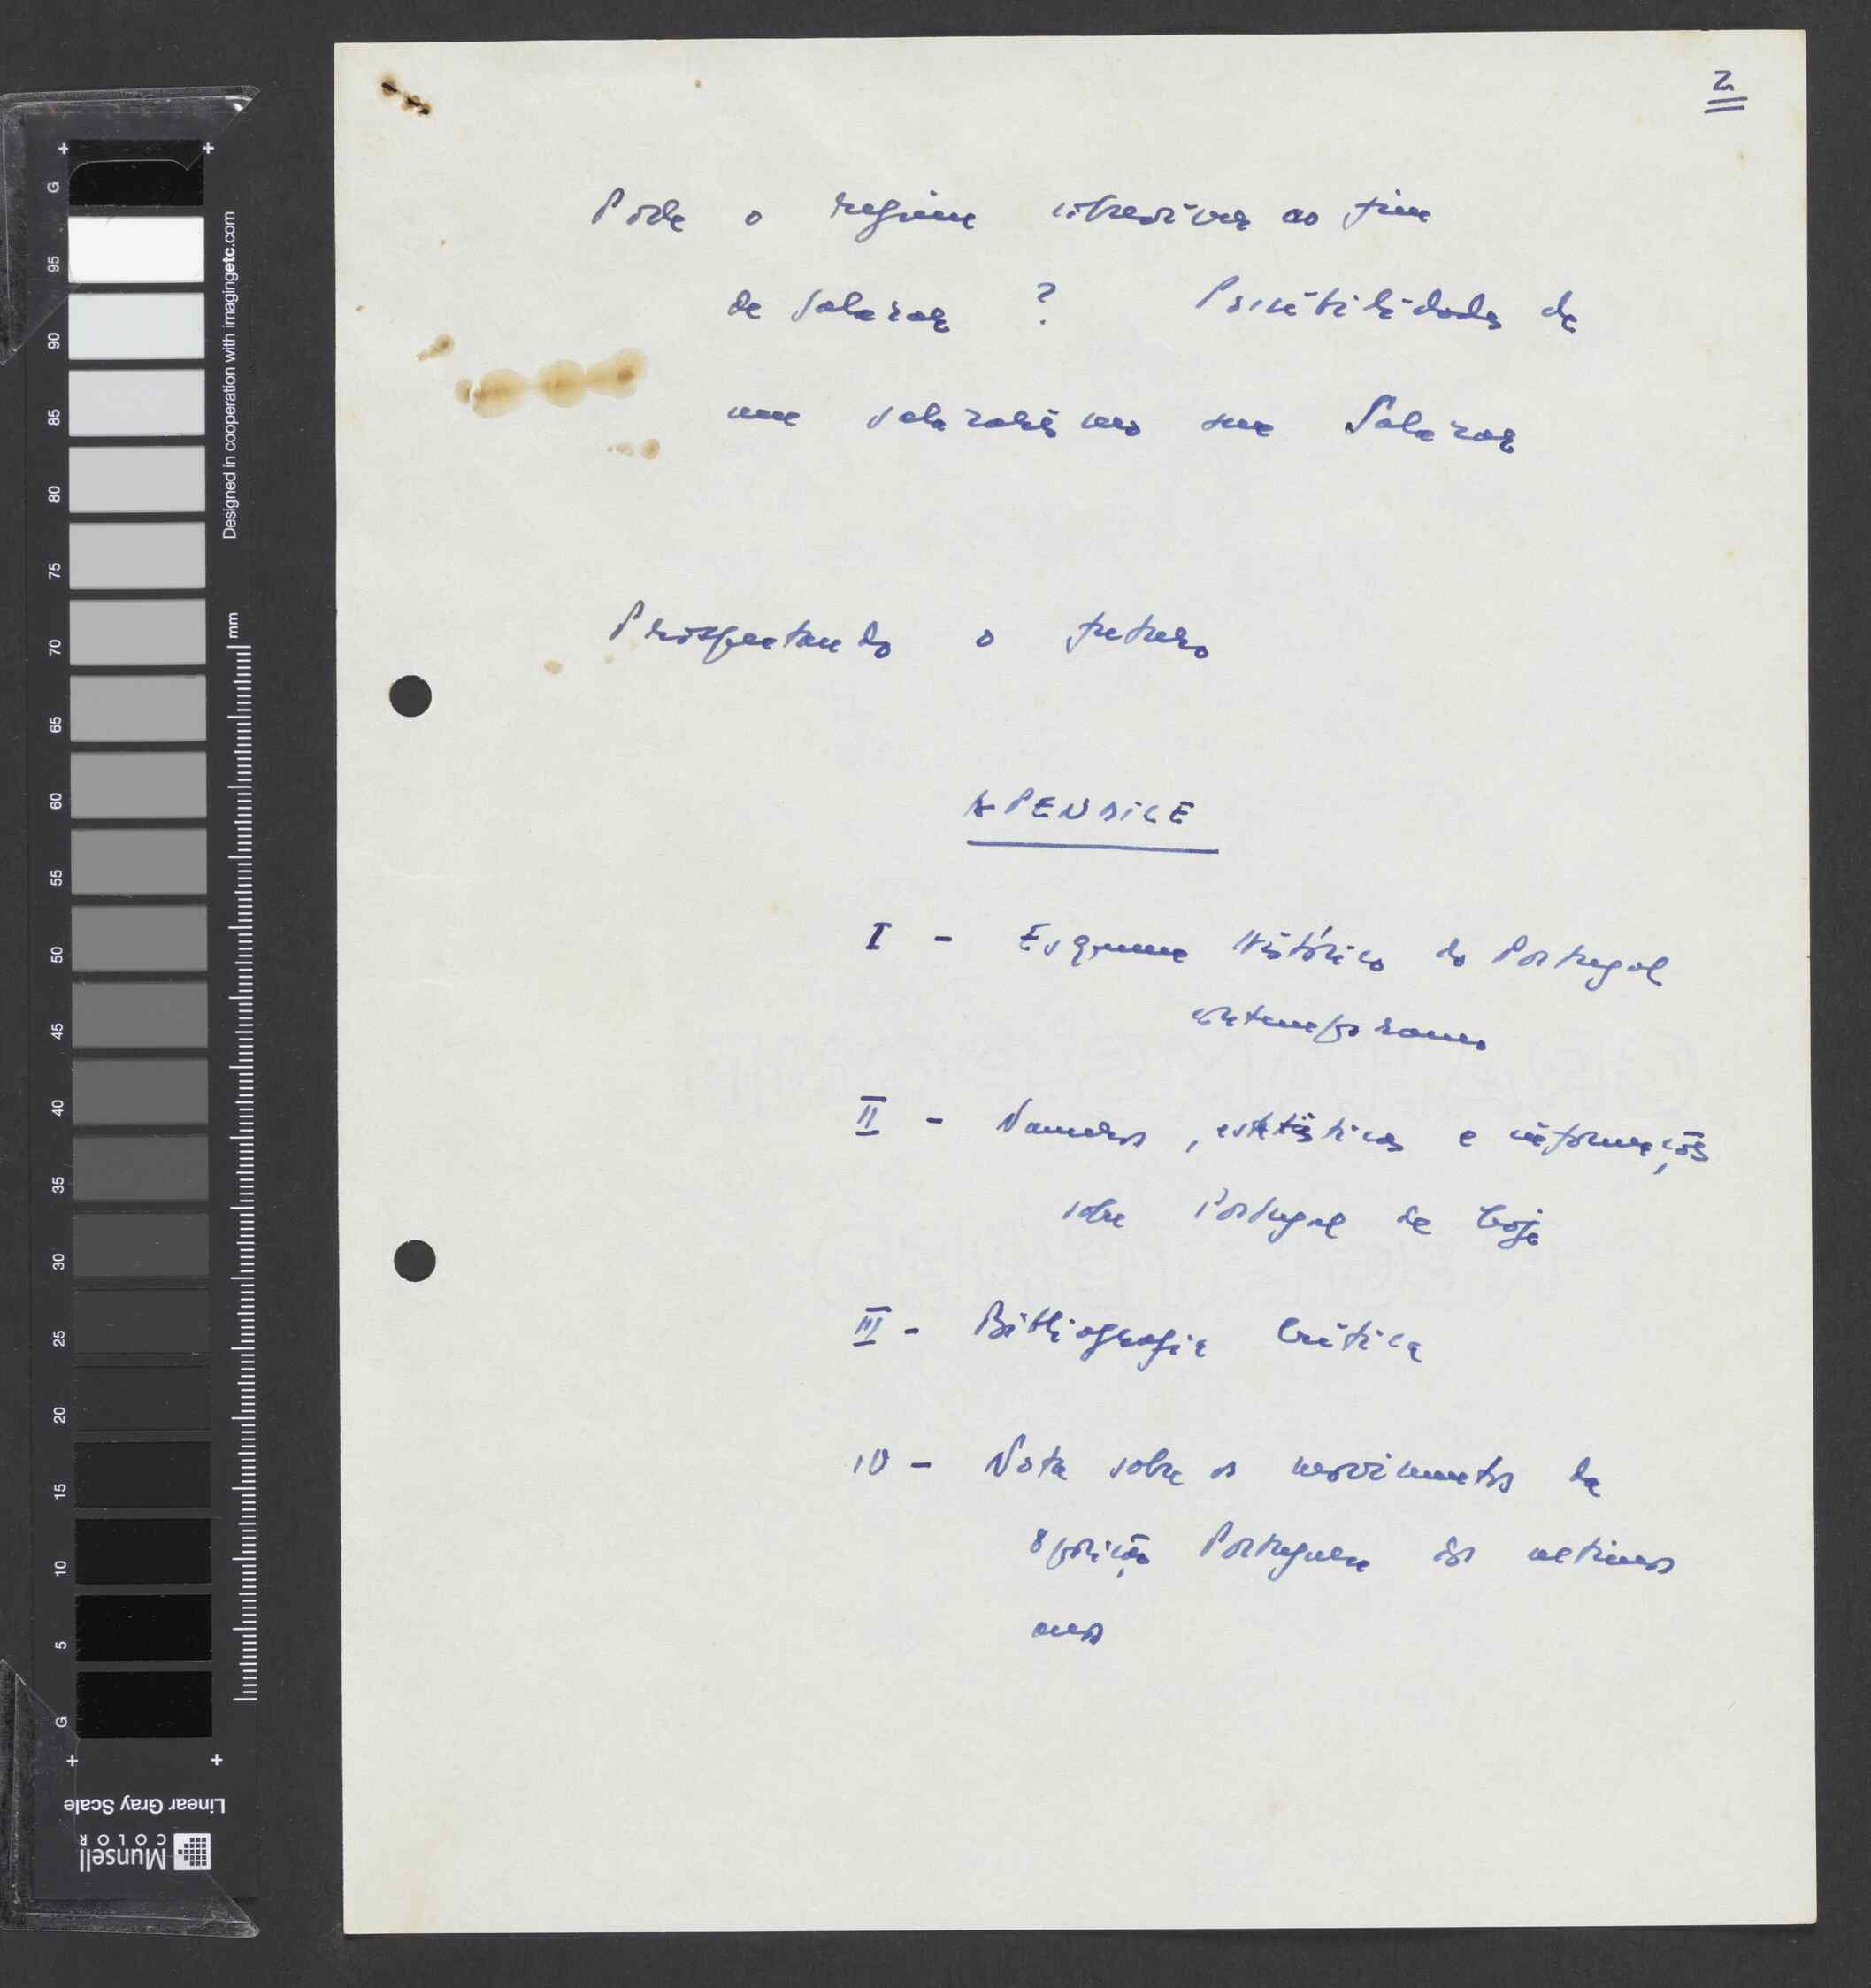 2
Pode o regime sobreviver ao fim
de Salazar ? Possibilidades de
um salazarismo sem Salazar
Prospectando o futuro
APENDICE
I - Esquema Histórico do Portugal
contemporaneo
II - Numeros, estatisticas e informações
sobre Portugal de hoje
III - Bibliografia Critica
IV - Nota sobre os movimentos da
Oposição Portuguesa dos ultimos
anos
G
95
90
85
80
75
70
65
60
55
50
45
40
35
30
25
20
15
10
5
G
Designed in cooperation with imagingetc.com
mm
Linear Gray Scale
Munsell
COLOR